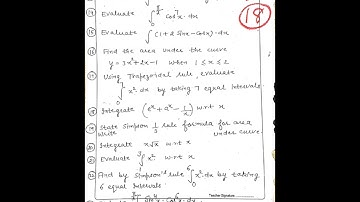 (14) Evaluate ∫₀^{π/2} Cos⁷x · dx
(15) Evaluate ∫ (1 + 2 Sinx - Cosx) · dx
(16) Find the area under the curve
y = 3x² + 2x - 1 when 1 ≤ x ≤ 2
(17) Using Trapezoidal rule, evaluate
∫₀⁷ x² dx by taking 7 equal Intervals
(18) Integrate (eˣ + aˣ - 1/x) w.r.t x
(19) State Simpson 1/3 rule formula for area
write under curve.
(20) Integrate x√x w.r.t x
(21) Evaluate x² w.r.t x
(22) Find by Simpson's rule ∫₀⁶ x² dx by taking
6 equal Intervals.
Teacher Signature
18